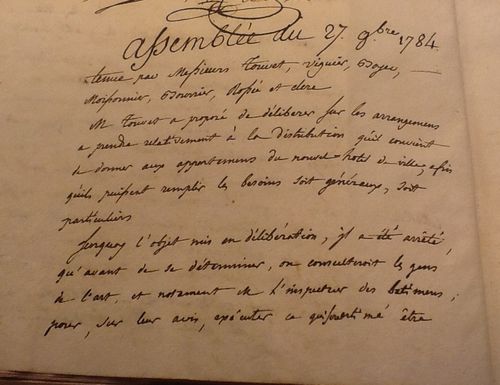 assemblée du 27. 9bre 1784
tenue par Messieurs Touvet, viguier, Boyer,
Moissonnier, Bouvier, Rosiée et clere
M Touvet a proposé de déliberer sur les arrangemens
a prendre relativement à la distribution qu'il convient
de donner aux appartemens du nouvel hotel de ville, afin
qu'ils puissent remplir les besoins soit généraux, soit
particuliers
surquoy l'objet mis en délibération, il a été arrêté,
qu'avant de se déterminer, on consulteroit les gens
de l'art, et notament M l'inspecteur des batimens,
pour, sur leur avis, exécuter ce qui estimé être